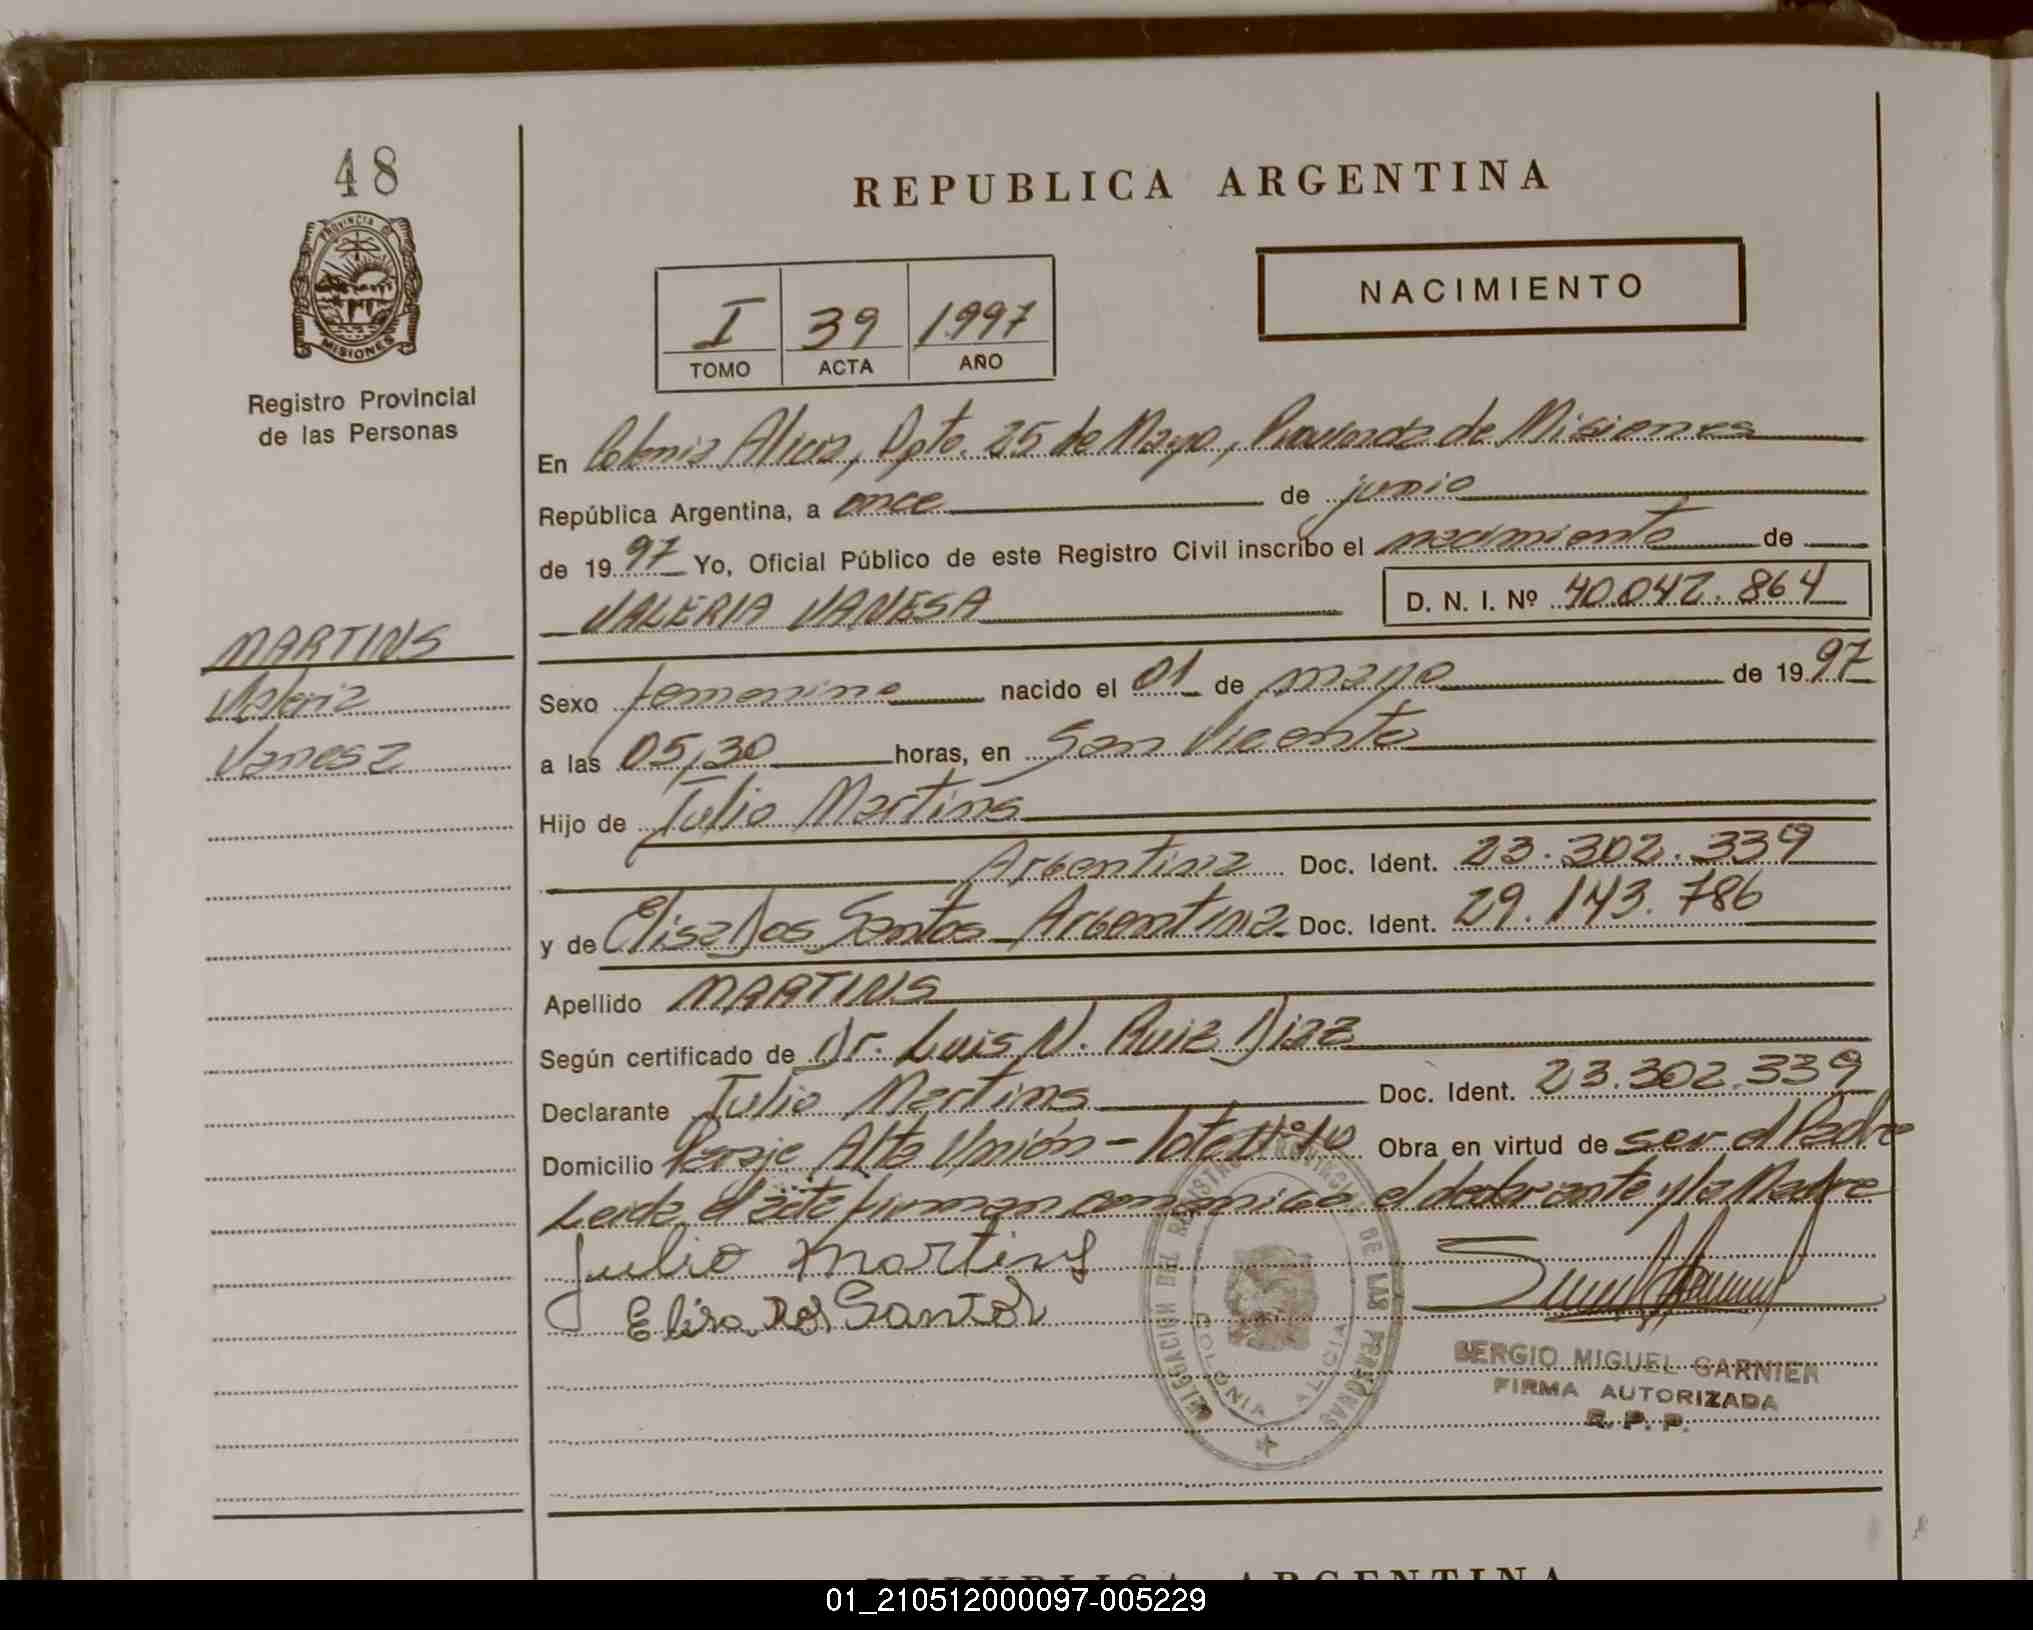 48
REPUBLICA ARGENTINA
PROVINCIA DE
MISIONES
Registro Provincial
de las Personas
I 39 1997
TOMO ACTA AÑO
NACIMIENTO
En Colonia Alicia, Dpto. 25 de Mayo, Provincia de Misiones
República Argentina, a once de junio
de 1997 Yo, Oficial Público de este Registro Civil inscribo el nacimiento de
VALERIA VANESA D. N. I. Nº 40.042.864
MARTINS
Valeria
Vanesa
Sexo femenino nacido el 01 de mayo de 1997
a las 05,30 horas, en San Vicente
Hijo de Julio Martins
Argentina Doc. Ident. 23.302.339
y de Elisa Dos Santos Argentina Doc. Ident. 29.143.786
Apellido MARTINS
Según certificado de Dr. Luis N. Ruiz Diaz
Declarante Julio Martins Doc. Ident. 23.302.339
Domicilio Paraje Alto Unión - lote Nº Obra en virtud de ser el Padre
Leida el acta firman conmigo el declarante y la Madre
Julio Martins
Elisa Dos Santos
DELEGACION DEL REGISTRO PROVINCIAL DE LAS PERSONAS
COLONIA ALICIA
SERGIO MIGUEL GARNIER
FIRMA AUTORIZADA
R. P. P.
REPUBLICA ARGENTINA
01_210512000097-005229